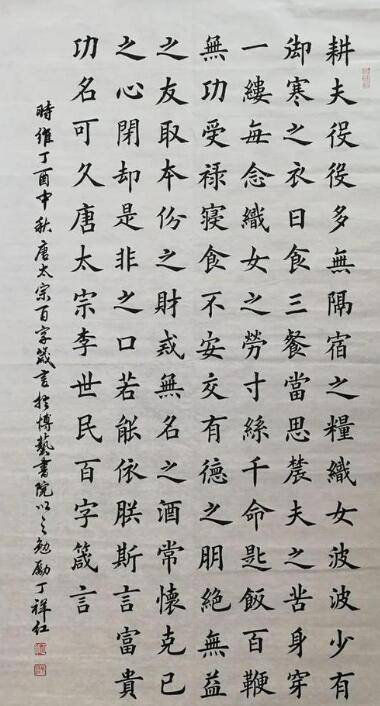 耕夫役役多無隔宿之糧織女波波少有
御寒之衣日食三餐當思農夫之苦身穿
一縷每念織女之勞寸絲千命匙飯百鞭
無功受祿寢食不安交有德之朋絕無益
之友取本份之財戒無名之酒常懷克己
之心閉却是非之口若能依朕斯言富貴
功名可久唐太宗李世民百字箴言
時維丁酉中秋唐太宗百字箴言於博藝書院以之勉勵丁祥红